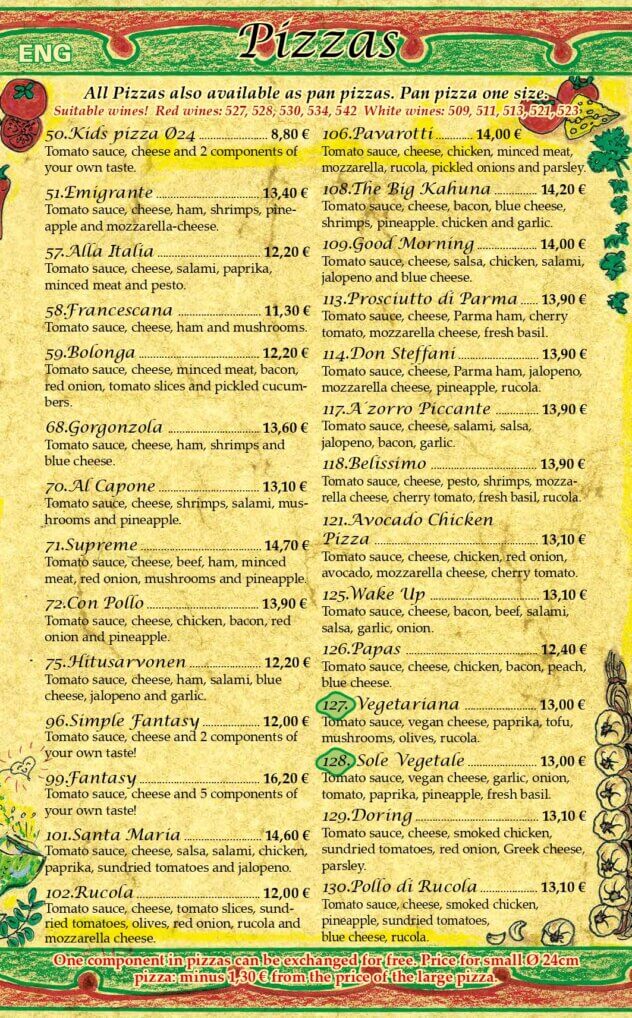 ENG
Pizzas
All Pizzas also available as pan pizzas. Pan pizza one size.
Suitable wines! Red wines: 527, 528, 530, 534, 542 White wines: 509, 511, 513, 521, 523
50.Kids pizza Ø24 ........................ 8,80 €
Tomato sauce, cheese and 2 components of
your own taste.
51.Emigrante ..................................... 13,40 €
Tomato sauce, cheese, ham, shrimps, pine-
apple and mozzarella-cheese.
57.Alla Italia .................................... 12,20 €
Tomato sauce, cheese, salami, paprika,
minced meat and pesto.
58.Francescana ............................ 11,30 €
Tomato sauce, cheese, ham and mushrooms.
59.Bolonga .......................................... 12,20 €
Tomato sauce, cheese, minced meat, bacon,
red onion, tomato slices and pickled cucum-
bers.
68.Gorgonzola ................................ 13,60 €
Tomato sauce, cheese, ham, shrimps and
blue cheese.
70.Al Capone ................................... 13,10 €
Tomato sauce, cheese, shrimps, salami, mus-
hrooms and pineapple.
71.Supreme .......................................... 14,70 €
Tomato sauce, cheese, beef, ham, minced
meat, red onion, mushrooms and pineapple.
72.Con Pollo ....................................... 13,90 €
Tomato sauce, cheese, chicken, bacon, red
onion and pineapple.
75.Hitusarvonen .......................... 12,20 €
Tomato sauce, cheese, ham, salami, blue
cheese, jalopeno and garlic.
96.Simple Fantasy .................... 12,00 €
Tomato sauce, cheese and 2 components of
your own taste!
99.Fantasy .......................................... 16,20 €
Tomato sauce, cheese and 5 components of
your own taste!
101.Santa Maria ............................ 14,60 €
Tomato sauce, cheese, salsa, salami, chicken,
paprika, sundried tomatoes and jalopeno.
102.Rucola ........................................... 12,00 €
Tomato sauce, cheese, tomato slices, sund-
ried tomatoes, olives, red onion, rucola and
mozzarella cheese.
106.Pavarotti ........... 14,00 €
Tomato sauce, cheese, chicken, minced meat,
mozzarella, rucola, pickled onions and parsley.
108.The Big Kahuna ............... 14,20 €
Tomato sauce, cheese, bacon, blue cheese,
shrimps, pineapple. chicken and garlic.
109.Good Morning ..................... 14,00 €
Tomato sauce, cheese, salsa, chicken, salami,
jalopeno and blue cheese.
113.Prosciutto di Parma ...... 13,90 €
Tomato sauce, cheese, Parma ham, cherry
tomato, mozzarella cheese, fresh basil.
114.Don Steffani ............................ 13,90 €
Tomato sauce, cheese, Parma ham, jalopeno,
mozzarella cheese, pineapple, rucola.
117.A´zorro Piccante ............... 13,90 €
Tomato sauce, cheese, salami, salsa,
jalopeno, bacon, garlic.
118.Belissimo ...................................... 13,90 €
Tomato sauce, cheese, pesto, shrimps, mozza-
rella cheese, cherry tomato, fresh basil, rucola.
121.Avocado Chicken
Pizza ......................................................... 13,10 €
Tomato sauce, cheese, chicken, red onion,
avocado, mozzarella cheese, cherry tomato.
125.Wake Up ...................................... 13,10 €
Tomato sauce, cheese, bacon, beef, salami,
salsa, garlic, onion.
126.Papas ............................................... 12,40 €
Tomato sauce, cheese, chicken, bacon, peach,
blue cheese.
127. Vegetariana .......................... 13,00 €
Tomato sauce, vegan cheese, paprika, tofu,
mushrooms, olives, rucola.
128. Sole Vegetale ....................... 13,00 €
Tomato sauce, vegan cheese, garlic, onion,
tomato, paprika, pineapple, fresh basil.
129.Doring ............................................ 13,10 €
Tomato sauce, cheese, smoked chicken,
sundried tomatoes, red onion, Greek cheese,
parsley.
130.Pollo di Rucola ..................... 13,10 €
Tomato sauce, cheese, smoked chicken,
pineapple, sundried tomatoes,
blue cheese, rucola.
One component in pizzas can be exchanged for free. Price for small Ø 24cm
pizza: minus 1,30 € from the price of the large pizza.